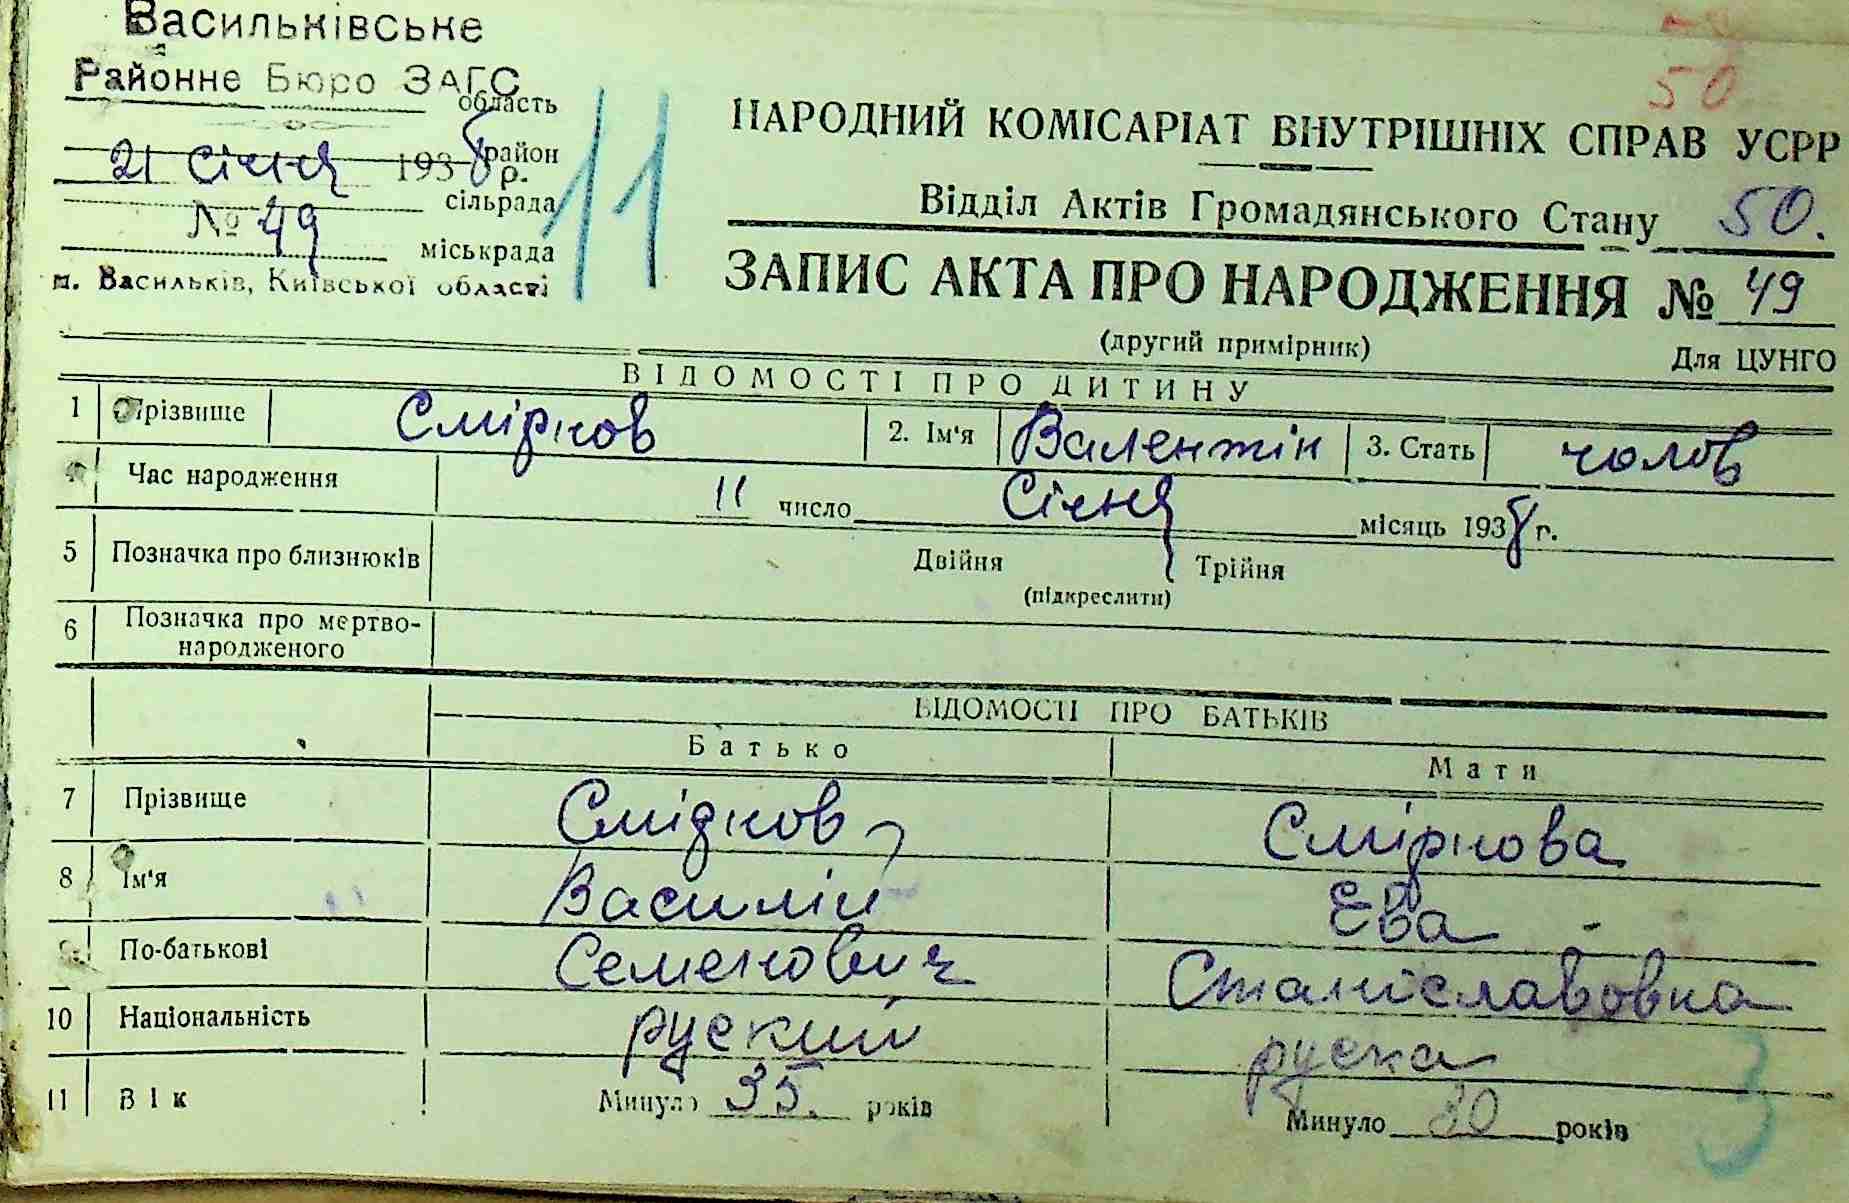 Васильківське
Районне Бюро ЗАГС
область
21 Січня 1938 р.
район
сільрада
№ 49
міськрада
м. Васильків, Київської області
11
50
НАРОДНИЙ КОМІСАРІАТ ВНУТРІШНІХ СПРАВ УСРР
Відділ Актів Громадянського Стану 50.
ЗАПИС АКТА ПРО НАРОДЖЕННЯ № 49
(другий примірник)
Для ЦУНГО
ВІДОМОСТІ ПРО ДИТИНУ
1 Прізвище Смірнов 2. Ім'я Валентін 3. Стать чолов
4 Час народження 11 число Січня місяць 1938 г.
5 Позначка про близнюків Двійня Трійня
(підкреслити)
6 Позначка про мертво-
народженого
ВІДОМОСТІ ПРО БАТЬКІВ
Батько Мати
7 Прізвище Смірнов Смірнова
8 Ім'я Василій Ева
9. По-батькові Семенович Станіславовна
10 Національність руский руска
11 Вік Минуло 35. років Минуло 30 років
3